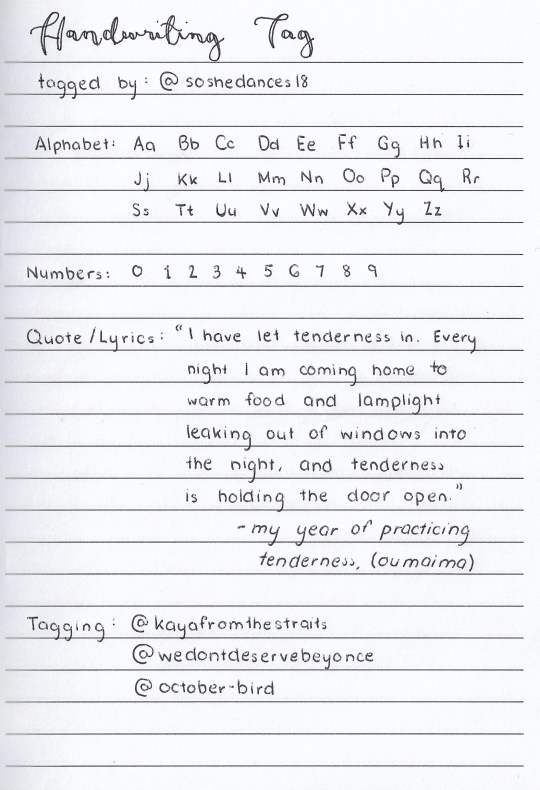 Handwriting Tag
tagged by: @soshedances18
Alphabet: Aa Bb Cc Dd Ee Ff Gg Hh Ii
Jj Kk Ll Mm Nn Oo Pp Qq Rr
Ss Tt Uu Vv Ww Xx Yy Zz
Numbers: 0 1 2 3 4 5 6 7 8 9
Quote/Lyrics: "I have let tenderness in. Every
night I am coming home to
warm food and lamplight
leaking out of windows into
the night, and tenderness
is holding the door open."
- my year of practicing
tenderness, (oumaima)
Tagging: @kayafromthestraits
@wedontdeservebeyonce
@october-bird